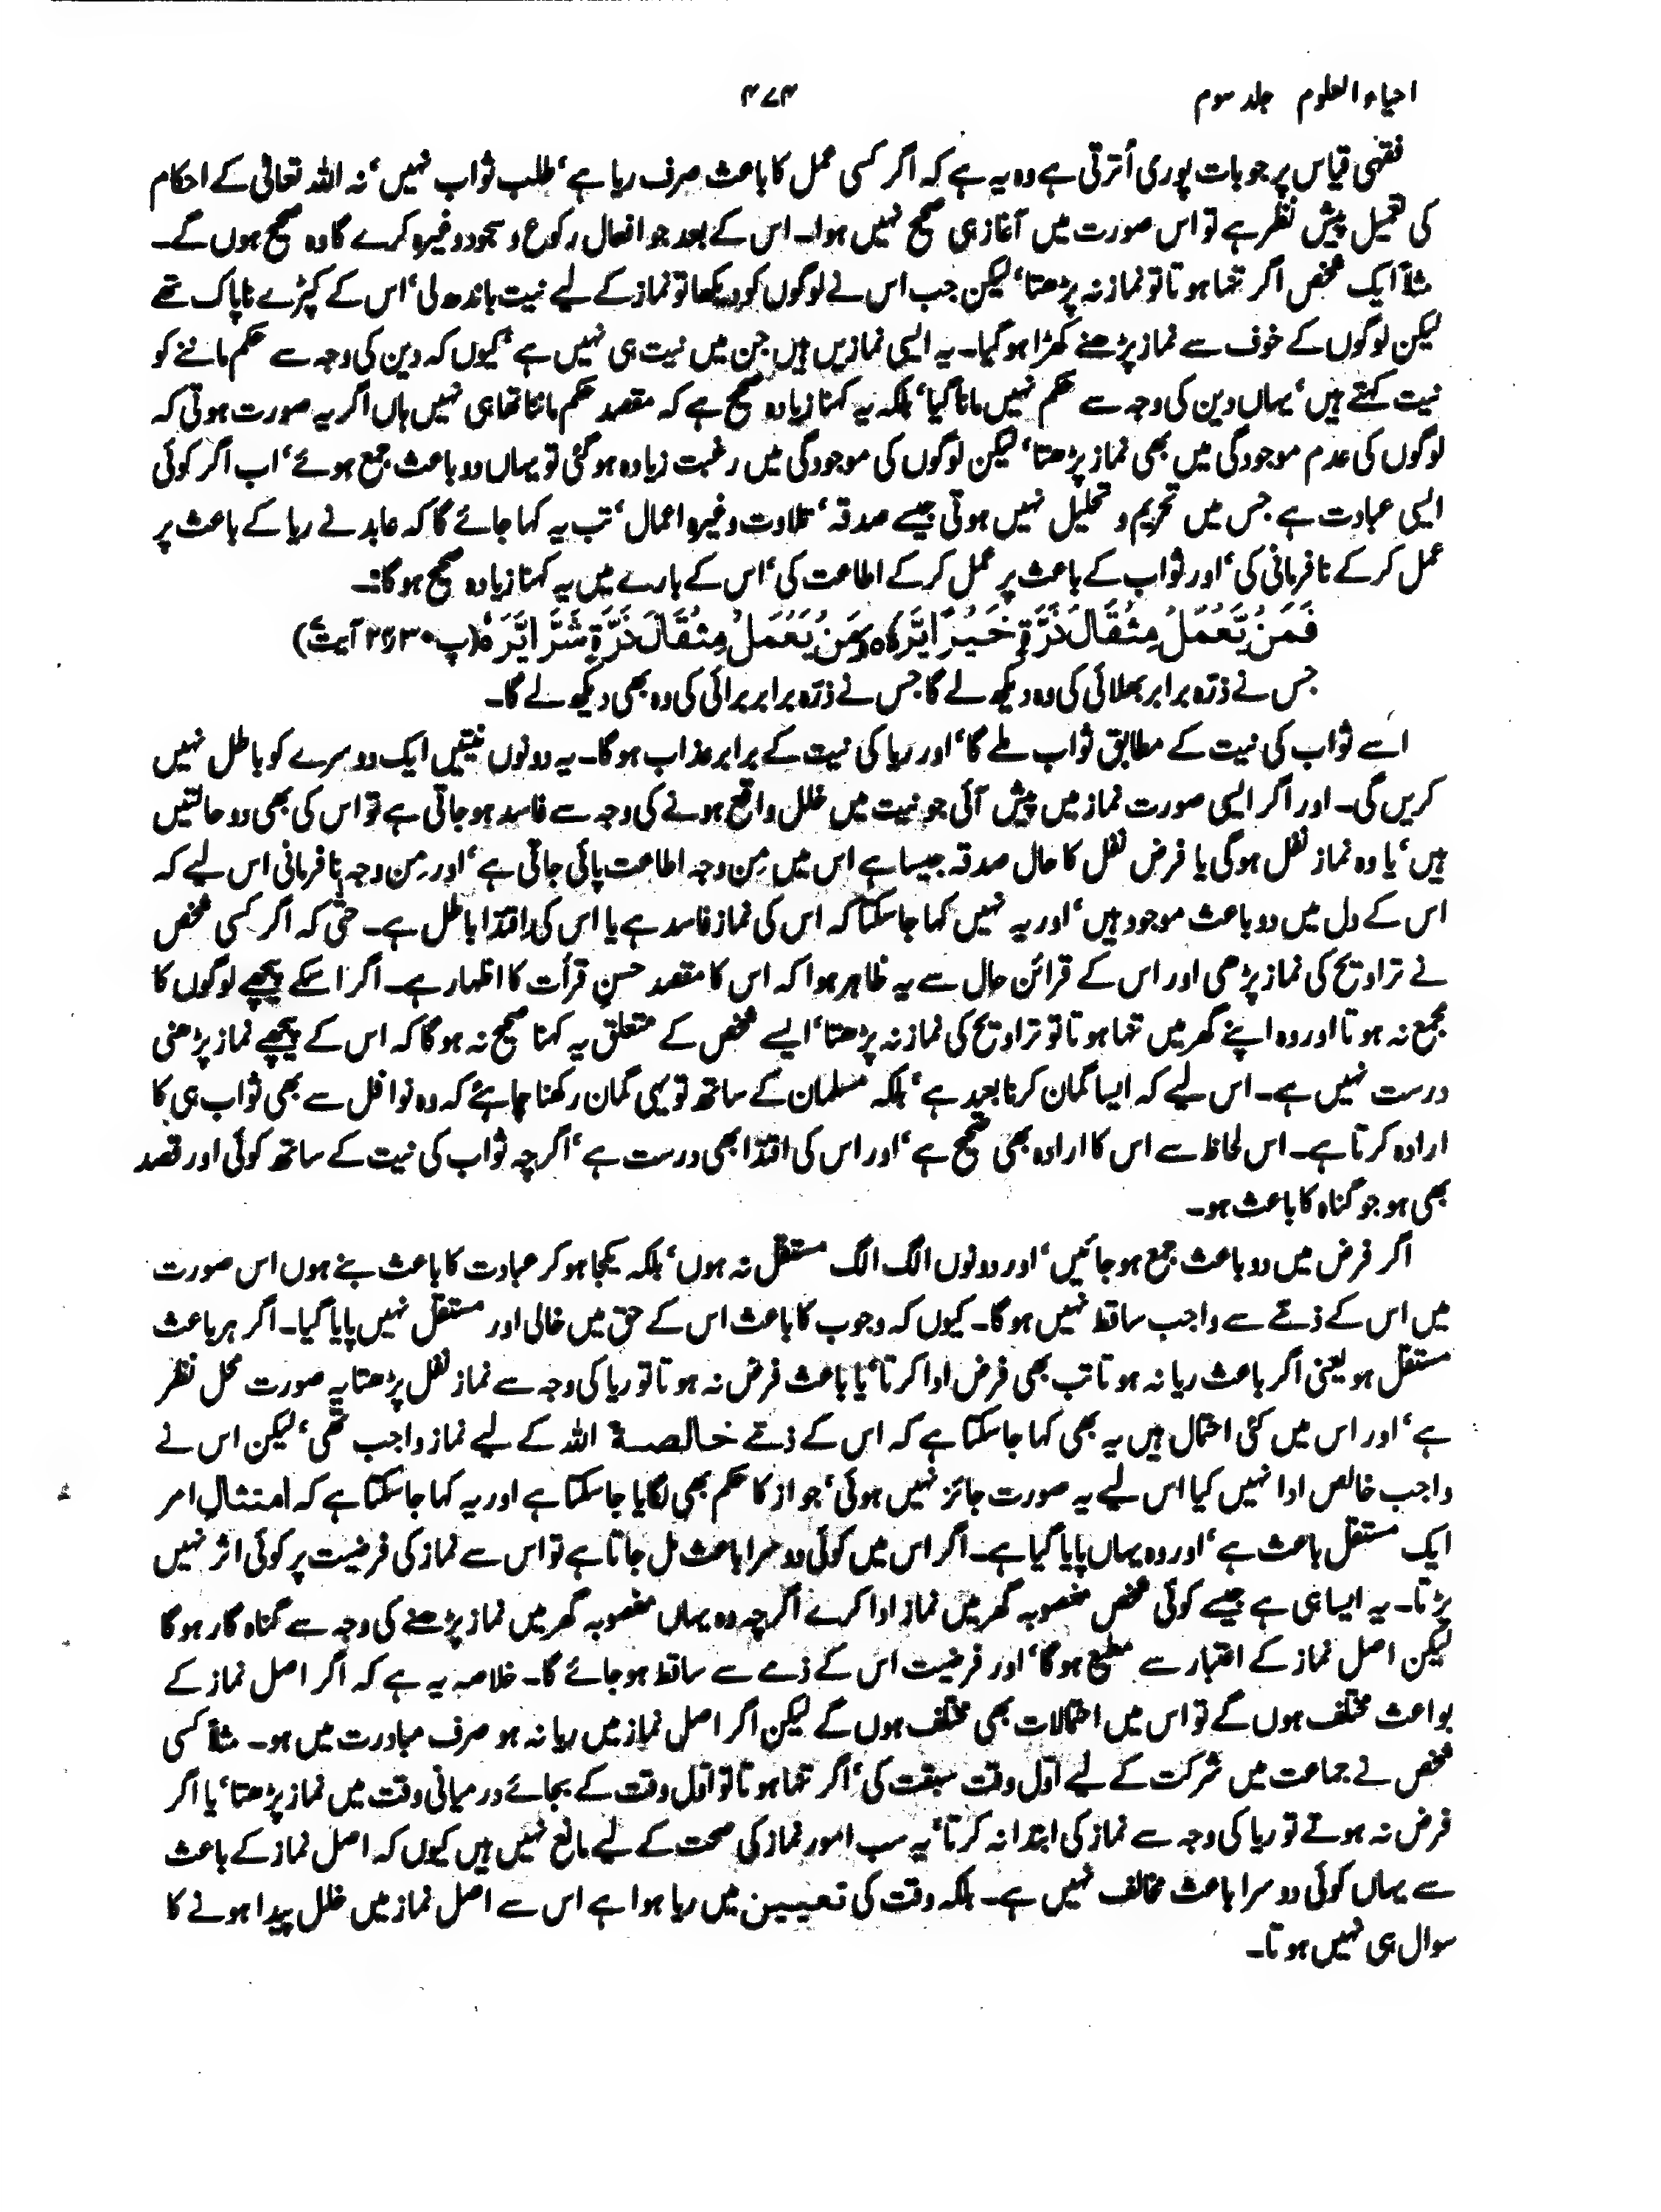 احیاء العلوم جلد سوم ۴۷۴
فقہی قیاس پر جو بات پوری اُترتی ہے وہ یہ ہے کہ اگر کسی عمل کا باعث صرف ریا ہے‘ طلب ثواب نہیں‘ نہ اللہ تعالیٰ کے احکام
کی تعمیل پیش نظر ہے تو اس صورت میں آغاز ہی صحیح نہیں ہوا۔ اس کے بعد جو افعال رکوع و سجود وغیرہ کرے گا وہ صحیح ہوں گے۔
مثلاً ایک شخص اگر تنہا ہوتا تو نماز نہ پڑھتا‘ لیکن جب اس نے لوگوں کو دیکھا تو نماز کے لیے نیت باندھ لی‘ اس کے کپڑے ناپاک تھے
لیکن لوگوں کے خوف سے نماز پڑھنے کھڑا ہو گیا۔ یہ ایسی نمازیں ہیں جن میں نیت ہی نہیں ہے‘ کیوں کہ دین کی وجہ سے حکم ماننے کو
نیت کہتے ہیں‘ یہاں دین کی وجہ سے حکم نہیں مانا گیا‘ بلکہ یہ کہنا زیادہ صحیح ہے کہ مقصد حکم ماننا تھا ہی نہیں ہاں اگر یہ صورت ہوتی کہ
لوگوں کی عدم موجودگی میں بھی نماز پڑھتا‘ لیکن لوگوں کی موجودگی میں رغبت زیادہ ہو گئی تو یہاں دو باعث جمع ہوئے‘ اب اگر کوئی
ایسی عبادت ہے جس میں تحریم و تحلیل نہیں ہوتی جیسے صدقہ‘ تلاوت وغیرہ اعمال‘ تب یہ کہا جائے گا کہ عابد نے ریا کے باعث پر
عمل کر کے نافرمانی کی‘ اور ثواب کے باعث پر عمل کر کے اطاعت کی‘ اس کے بارے میں یہ کہنا زیادہ صحیح ہوگا:۔
فَمَنْ يَّعْمَلْ مِثْقَالَ ذَرَّةٍ خَيْرًا يَّرَهٗ ٥ وَمَنْ يَّعْمَلْ مِثْقَالَ ذَرَّةٍ شَرًّا يَّرَهٗ (پ ۳۰ ر ۲۴ آیت)
جس نے ذرّہ برابر بھلائی کی وہ دیکھ لے گا جس نے ذرّہ برابر برائی کی وہ بھی دیکھ لے گا۔
اسے ثواب کی نیت کے مطابق ثواب ملے گا‘ اور ریا کی نیت کے برابر عذاب ہوگا۔ یہ دونوں نیتیں ایک دوسرے کو باطل نہیں
کریں گی۔ اور اگر ایسی صورت نماز میں پیش آئی جو نیت میں خلل واقع ہونے کی وجہ سے فاسد ہو جاتی ہے تو اس کی بھی دو حالتیں
ہیں‘ یا وہ نماز نفل ہوگی یا فرض نفل کا حال صدقہ جیسا ہے اس میں مِن وجہ اطاعت پائی جاتی ہے‘ اور مِن وجہ نافرمانی اس لیے کہ
اس کے دل میں دو باعث موجود ہیں‘ اور یہ نہیں کہا جا سکتا کہ اس کی نماز فاسد ہے یا اس کی اقتدا باطل ہے۔ حتّٰی کہ اگر کسی شخص
نے تراویح کی نماز پڑھی اور اس کے قرائن حال سے یہ ظاہر ہوا کہ اس کا مقصد حسنِ قرأت کا اظہار ہے۔ اگر اسکے پیچھے لوگوں کا
مجمع نہ ہوتا اور وہ اپنے گھر میں تنہا ہوتا تو تراویح کی نماز نہ پڑھتا‘ ایسے شخص کے متعلق یہ کہنا صحیح نہ ہوگا کہ اس کے پیچھے نماز پڑھنی
درست نہیں ہے۔ اس لیے کہ ایسا گمان کرنا بعید ہے‘ بلکہ مسلمان کے ساتھ تو یہی گمان رکھنا چاہئے کہ وہ نوافل سے بھی ثواب ہی کا
ارادہ کرتا ہے۔ اس لحاظ سے اس کا ارادہ بھی صحیح ہے‘ اور اس کی اقتدا بھی درست ہے‘ اگرچہ ثواب کی نیت کے ساتھ کوئی اور قصد
بھی ہو جو گناہ کا باعث ہو۔
اگر فرض میں دو باعث جمع ہو جائیں‘ اور دونوں الگ الگ مستقل نہ ہوں‘ بلکہ یکجا ہو کر عبادت کا باعث بنے ہوں اس صورت
میں اس کے ذمّے سے واجب ساقط نہیں ہوگا۔ کیوں کہ وجوب کا باعث اس کے حق میں خالی اور مستقل نہیں پایا گیا۔ اگر ہر باعث
مستقل ہو یعنی اگر باعث ریا نہ ہوتا تب بھی فرض ادا کرتا‘ یا باعث فرض نہ ہوتا تو ریا کی وجہ سے نماز نفل پڑھتا یہ صورت محل نظر
ہے‘ اور اس میں کئی احتمال ہیں یہ بھی کہا جا سکتا ہے کہ اس کے ذمّے خالصة اللہ کے لیے نماز واجب تھی‘ لیکن اس نے
واجب خالص ادا نہیں کیا اس لیے یہ صورت جائز نہیں ہوئی‘ جواز کا حکم بھی لگایا جا سکتا ہے اور یہ کہا جا سکتا ہے کہ امتثالِ امر
ایک مستقل باعث ہے‘ اور وہ یہاں پایا گیا ہے۔ اگر اس میں کوئی دوسرا باعث مل جاتا ہے تو اس سے نماز کی فرضیت پر کوئی اثر نہیں
پڑتا۔ یہ ایسا ہی ہے جیسے کوئی شخص مغصوبہ گھر میں نماز ادا کرے اگرچہ وہ یہاں مغصوبہ گھر میں نماز پڑھنے کی وجہ سے گناہ گار ہوگا
لیکن اصل نماز کے اعتبار سے مطیع ہوگا‘ اور فرضیت اس کے ذمے سے ساقط ہو جائے گا۔ خلاصہ یہ ہے کہ اگر اصل نماز کے
بواعث مختلف ہوں گے تو اس میں احتمالات بھی مختلف ہوں گے لیکن اگر اصل نماز میں ریا نہ ہو صرف مبادرت میں ہو۔ مثلاً کسی
شخص نے جماعت میں شرکت کے لیے اوّل وقت سبقت کی‘ اگر تنہا ہوتا تو اوّل وقت کے بجائے درمیانی وقت میں نماز پڑھتا‘ یا اگر
فرض نہ ہوتے تو ریا کی وجہ سے نماز کی ابتدا نہ کرتا‘ یہ سب امور نماز کی صحت کے لیے مانع نہیں ہیں کیوں کہ اصل نماز کے باعث
سے یہاں کوئی دوسرا باعث مخالف نہیں ہے۔ بلکہ وقت کی تعیین میں ریا ہوا ہے اس سے اصل نماز میں خلل پیدا ہونے کا
سوال ہی نہیں ہوتا۔